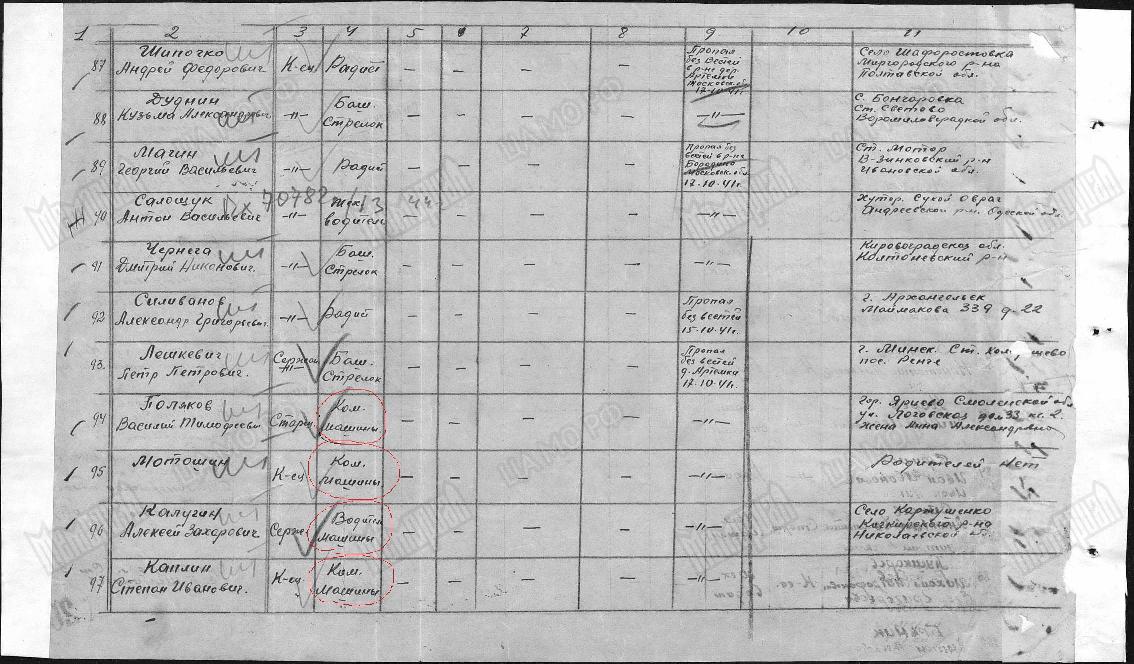 1 2 3 4 5 6 7 8 9 10 11
87 Шипочко
Андрей Федорович К-ец Радист — — — — Пропал
без вести
в р-не дер.
Артемки
Московской
17-10-41г.
Село Шафоростовка
Миргородского р-на
Полтавской обл.
88 Дуднин
Кузьма Александрович —„— Баш.
Стрелок — — — — —„—
С. Бончаровка
Ст. Светово
Ворошиловградской обл.
89 Магин
Георгий Васильевич —„— Радист — — — — Пропал без
вести в р-не
Бородино
Московск. обл.
17-10-41г.
Ст. Мотор
В-Зинковский р-н
Ивановской обл.
Вх 70782 13 44
90 Салощук
Антон Васильевич —„— Мех.
водитель — — — — —„—
Хутор. Сухой Овраг
Андреевской р-н. Одеской обл.
91 Чернега
Дмитрий Никонович. —„— Баш.
Стрелок — — — — —„—
Кировоградская обл.
р-н
92 Силиванов
Александр Григорьевич. —„— Радист — — — — Пропал
без вести
15-10-41г.
г. Архангельск
Маймакова 339 д. 22
93. Лешкевич
Петр Петрович. Сержан
—„— Баш.
Стрелок — — — — Пропал
без вести
д. Артемка
17-10-41г.
г. Минск. Ст.
пос.
94 Поляков
Василий Тимофеевич Старш. Ком.
машины — — — — —„—
гор. Ярцево Смоленской обл
ул. Логовская дом 33 кв. 2.
жена Анна Александровна
95 Мотошин К-ец Ком.
машины — — — — —„—
Родителей нет
96 Калугин
Алексей Захарович Серж. Водител
машины — — — — —„—
Село Картушенко
р-на
Николаевской обл.
97 Каплин
Степан Иванович. К-ец Ком.
машины — — — — —„—
ЦАМО РФ
МЕМОРИАЛ